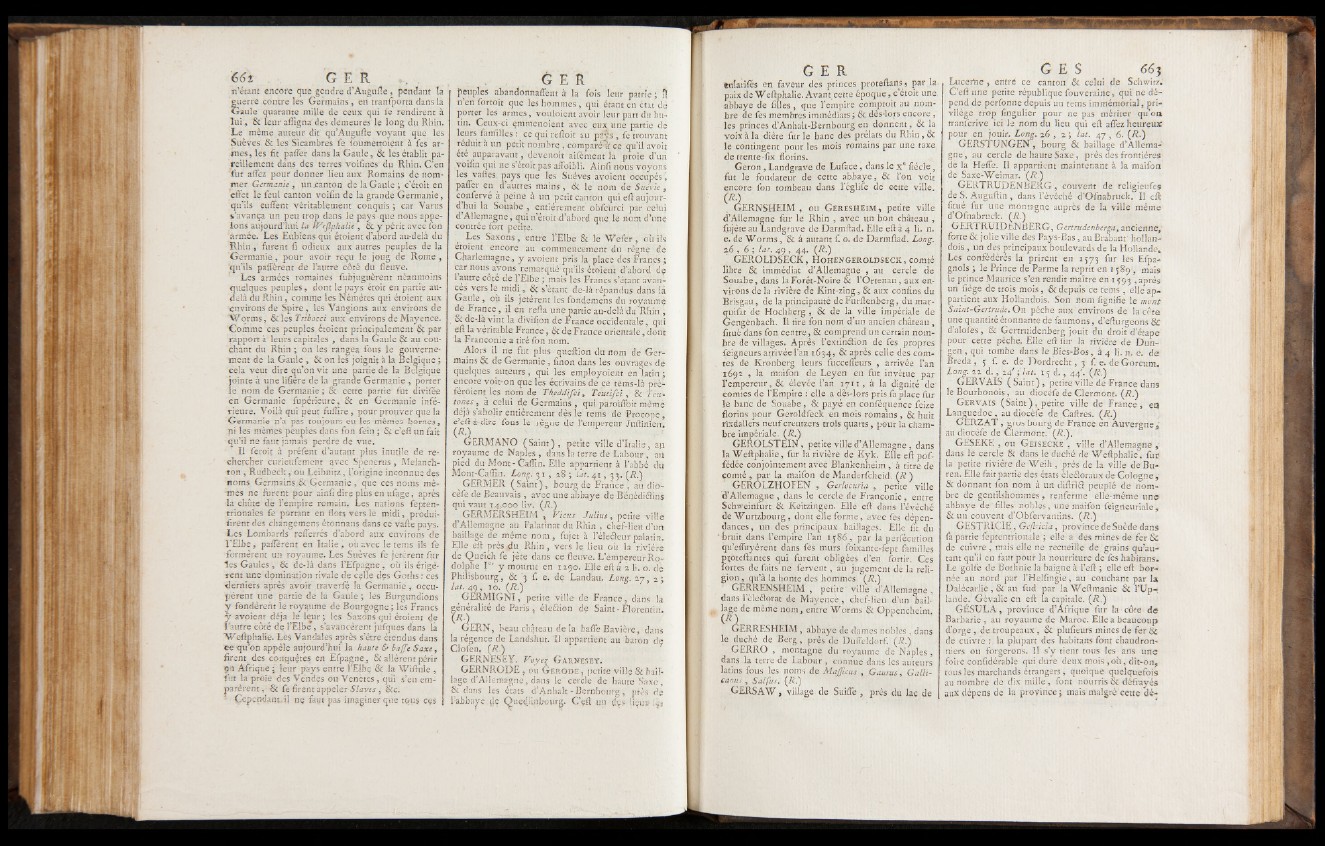 662 G E R
n'étant encore que gendre d'Auguſte, pendant la
guerre contre les Germains, en tranſporta dans la
Gaule quarante mille de ceux qui ſe rendirent à
lui, & leur aſſigna des demeures le long du Rhin.
Le même auteur dit qu'Auguſte voyant que les
Suèves & les Sicambres ſe ſoumettoient à ſes ar-
mes, les fit paſſer dans la Gaule, & les établit pa-
reillement dans des terres voiſines du Rhin. C'en
fut aſſez pour donner lieu aux Romains de nom-
mer Germanie, un canton de la Gaule; c'étoit en
effet le ſeul canton voiſin de la grande Germanie,
qu'ils euſſent véritablement conquis; car Varus
s'avança un peu trop dans le pays que nous appe-
lons aujourd'hui la Weſtphalie, & y périt avec ſon
armée. Les Eubiens qui étoient d'abord au-delà du
Rhin, furent ſi odieux aux autres peuples de la
Germanie, pour avoir reçu le joug de Rome,
qu'ils paſſèrent de l'autre côté du fleuve.
Les armées romaines ſubjuguèrent néanmoins
quelques peuples, dont le pays étoit en partie au-
delà du Rhin, comme les Németes qui étoient aux
environs de Spire, les Vangions aux environs de
Worms, & les Tribocci aux environs de Mayence.
Comme ces peuples étoient principalement & par
rapport à leurs capitales, dans la Gaule & au cou-
chant du Rhin; on les rangea ſous le gouverne-
ment de la Gaule, & on les joignit à la Belgique;
cela veut dire qu'on vit une partie de la Belgique
jointe à une liſière de la grande Germanie, porter
le nom de Germanie; & cette partie fut diviſée
en Germanie ſupérieure, & en Germanie infé-
rieure. Voilà qui peut ſuffire, pour prouver que la
Germanie n'a pas toujours eu les mêmes bornes,
ni les mêmes peuples dans ſon ſein; & c'eſt un fait
qu'il ne faut jamais perdre de vue.
Il ſeroit à préſent d'autant plus inutile de re-
chercher curieuſement avec Spenerus, Melanch-
ton, Rudbeck, ou Leibnitz, l'origine inconnue des
noms Germains & Germanie, que ces noms mê-
mes ne furent pour ainſi dire plus en uſage, après
la chûte de l'empire romain. Les nations ſepten-
trionales ſe portant en flots vers le midi, produi-
ſirent des changemens étonnans dans ce vaſte pays.
Les Lombards reſſerrés d'abord aux environs de
l'Elbe, paſſèrent en Italie, où avec le tems ils ſe
formèrent un royaume. Les Suèves ſe jetèrent ſur
les Gaules, & de-là dans l'Eſpagne, où ils érigè-
rent une domination rivale de celle des Goths: ces
derniers après avoir traverſé la Germanie, occu-
pèrent une partie de la Gaule; les Burgundions
y fondèrent le royaume de Bourgogne; les Francs
y avoient déja le leur; les Saxons qui étoient de
l'autre côté de l'Elbe, s'avancèrent juſques dans la
Weſtphalie. Les Vandales après s'être étendus dans
ce qu'on appèle aujourd'hui la Haute & baſſe Saxe,
firent des conquêtes en Eſpagne, & allèrent périr
en Afrique; leur pays entre l'Elbe & la Wiſtule,
fut la proie des Vendes ou Venetes, qui s'en em-
parèrent, & ſe firent appeler Slaves, &c.
Cependant, il ne faut pas imaginer que tous ces
G E R
peuples abandonnaſſent à la fois leur patrie; il
n'en ſortoit que les hommes, qui étant en état de
porter les armes, vouloient avoir leur part du bu-
tin. Ceux-ci emmenoient avec eux une partie de
leurs familles: ce qui reſtoit au pays, ſe trouvant
réduit à un petit nombre, comparé à ce qu'il avoit
été auparavant, devenoit aiſément la proie d'un
voiſin qui ne s'étoit pas affoibli. Ainſi nous voyons
les vaſtes pays que les Suèves avoient occupés,
paſſer en d'autres mains, & le nom de Suévie,
conſervé à peine à un petit canton qui eſt aujour-
d'hui la Souabe, entièrement obſcurci par celui
d'Allemagne, qui n'étoit d'abord que le nom d'une
contrée fort petite.
Les Saxons, entre l'Elbe & le Weſer, où ils
étoient encore au commencement du règne de
Charlemagne, y avoient pris la place des Francs;
car nous avons remarqué qu'ils étoient d'abord de
l'autre côté de l'Elbe; mais les Francs s'étant avan-
cés vers le midi, & s'étant de-là répandus dans la
Gaule, où ils jetèrent les fondemens du royaume
de France, il en reſta une partie au-delà du Rhin,
& de-là vint la diviſion de France occidentale, qui
eſt la véritable France, & de France orientale, dont
la Franconie a tiré ſon nom.
Alors il ne fut plus queſtion du nom de Ger-
mains & de Germanie, ſinon dans les ouvrages de
quelques auteurs, qui les employoient en latin;
encore voit-on que les écrivains de ce tems-là pré-
féroient les nom de Theddiſci, Teutiſci, & Teu-
tones, à celui de Germains, qui paroiſſoit même
déja s'abolir entièrement dès le tems de Procope,
c'eſt-à-dire ſous le règne de l'empereur Juſtinien.
(R.)
GERMANO (Saint), petite ville d'Italie, au
royaume de Naples, dans la terre de Labour, au
pied du Mont-Caſſin. Elle appartient à l'abbé du
Mont-Caſſin. Long. 31, 28; lat. 41, 33. (R.)
GERMER (Saint), bourg de France, au dio-
cèſe de Beauvais, avec une abbaye de Bénédictins
qui vaut 14,000 liv. (R.)
GERMERSHEIM, Vicus Julius, petite ville
d'Allemagne au Palatinat du Rhin, chef-lieu d'un
bailliage de même nom, ſujet à l'électeur palatin.
Elle eſt près du Rhin, vers le lieu où la rivière
de Queich ſe jète dans ce fleuve. L'empereur Ro-
dolphe Ier y mourut en 1290. Elle eſt à 2 li. o. de
Philisbourg, & 3 ſ. e. de Landau. Long. 27, 2;
lat. 49, 10. (R.)
GERMIGNI, petite ville de France, dans la
généralité de Paris, élection de Saint-Florentin.
(R.)
GERN, beau château de la baſſe Bavière, dans
la régence de Landshut. Il appartient au baron de
Cloſen. (R.)
GERNESEY. Voyez GARNESEY.
GERNRODE, ou GERODE, petite ville & bail-
liage d'Allemagne, dans le cercle de haute Saxe,
& dans les états d'Anhalt-Bernbourg, près de
l'abbaye de Quedlinbourg. C'eſt un des lieux
G E R
enlariſés en faveur des princes proteſtans, par la
paix de Weſtphalie. Avant cette époque, c'étoit une
abbaye de filles, que l'empire comptoit au nom-
bre de ſes membres immédiats; & dès-lors encore,
les princes d'Anhalt-Bernbourg en donnent, & la
voix à la diète ſur le banc des prélats du Rhin, &
le contingent pour les mois romains par une taxe
de trente-ſix florins.
Geron, Landgrave de Luſace, dans le Xe ſiècle,
fut le fondateur de cette abbaye, & l'on voit
encore ſon tombeau dans l'égliſe de cette ville.
(R.)
GERNSHEIM, ou GERESHEIM, petite ville
d'Allemagne ſur le Rhin, avec un bon château,
ſujète au Landgrave de Darmſtad. Elle eſt à 4 li. n.
e. de Worms, & à autant ſ. o. de Darmſtad. Long.
26, 6; lat. 49, 44. (R.)
GEROLDSECK, HOHENGEROLDSECK, comté
libre & immédiat d'Allemagne, au cercle de
Souabe, dans la Forêt-Noire & l'Ortenau, aux en-
virons de la rivière de Kint-zing, & aux confins du
Briſgau, de la principauté de Furſtenberg, du mar-
quiſat de Hochberg, & de la ville impériale de
Gengenbach. Il tire ſon nom d'un ancien château,
ſitué dans ſon centre, & comprend un certain nom-
bre de villages. Après l'extinction de ſes propres
ſeigneurs arrivée l'an 1634, & après celle des com-
tes de Kronberg leurs ſucceſſeurs, arrivée l'an
1692, la maiſon de Leyen en fut invêtue par
l'empereur, & élevée l'an 1711, à la dignité de
comtes de l'Empire: elle a dès-lors pris ſa place ſur
le banc de Souabe, & payé en conſéquence ſeize
florins pour Geroldſeck en mois romains, & huit
rixdallers neuf creutzers trois quarts, pour la cham-
bre impériale. (R.)
GEROLSTEIN, petite ville d'Allemagne, dans
la Weſtphalie, ſur la rivière de Kyk. Elle eſt poſ-
ſédée conjointement avec Blankenheim, à titre de
comté, par la maiſon de Manderſcheid. (R.)
GEROLZHOFEN, Gerlocuria, petite ville
d'Allemagne, dans le cercle de Franconie, entre
Schweinfurt & Keitzingen. Elle eſt dans l'évêché
de Wurtzbourg, dont elle forme, avec ſes dépen-
dances, un des principaux bailliages. Elle fit du
bruit dans l'empire l'an 1586, par la perſécution
qu'eſſuyèrent dans ſes murs ſoixante-ſept familles
proteſtantes qui furent obligées d'en ſortir. Ces
ſortes de faits ne ſervent, au jugement de la reli-
gion, qu'à la honte des hommes. (R.)
GERRENSHEIM, petite ville d'Allemagne,
dans l'électorat de Mayence, chef-lieu d'un bail-
lage de même nom, entre Worms & Oppenheim.
(R.)
GERRESHEIM, abbaye de dames nobles, dans
le duché de Berg, près de Duſſeldorf. (R.)
GERRO, montagne du royaume de Naples,
dans la terre de Labour, connue dans les auteurs
latins ſous les noms de Maſſicus, Gaurus, Galli-
canus, Salſus. (R.)
GERSAW, village de Suiſſe, près du lac de
G E S 663
Lucerne, entre ce canton & celui de Schwitz.
C'eſt une petite république ſouveraine, qui ne dé-
pend de perſonne depuis un tems immémorial, pri-
vilège trop ſingulier pour ne pas mériter qu'on
tranſcrive ici le nom du lieu qui eſt aſſez heureux
pour en jouir. Long. 26, 2; lat. 47, 6. (R.)
GERSTUNGEN, bourg & bailliage d'Allema-
gne, au cercle de haute Saxe, près des frontières
de la Heſſe. Il appartient maintenant à la maiſon
de Saxe-Weimar. (R.)
GERTRUDENBERG, couvent de religieuſes
de S. Auguſtin, dans l'évêché d'Oſnabruck. Il eſt
ſitué ſur une montagne auprès de la ville même
d'Oſnabruck. (R.)
GERTRUIDENBERG, Gertrudenberga, ancienne,
forte & jolie ville des Pays-Bas, au Brabant hollan-
dois, un des principaux boulevards de la Hollande.
Les confédérés la prirent en 1573 ſur les Eſpa-
gnols; le Prince de Parme la reprit en 1589, mais
le prince Maurice s'en rendit maître en 1593, après
un ſiège de trois mois, & depuis ce tems, elle ap-
partient aux Hollandois. Son nom ſignifie le mont
Saint-Gertrude. On pêche aux environs de la côte
une quantité étonnante de ſaumons, d'eſturgeons &
d'aloſes, & Gertruidenberg jouit du droit d'étape
pour cette pêche. Elle eſt ſur la rivière de Dun-
gen, qui tombe dans le Bies-Bos, à 4 li. n. e. de
Breda, 5 ſ. e. de Dordrecht, 3 ſ. e. de Gorcum.
Long. 22 d., 24'; lat. 15 d., 44'. (R.)
GERVAIS (Saint), petite ville de France dans
le Bourbonois, au diocèſe de Clermont. (R.)
GERVAIS (Saint), petite ville de France, en
Languedoc, au diocèſe de Caſtres. (R.)
GERZAT, gros bourg de France en Auvergne,
au diocèſe de Clermont. (R.).
GESEKE, ou GEISECKE, ville d'Allemagne,
dans le cercle & dans le duché de Weſtphalie, ſur
la petite rivière de Weih, près de la ville de Bu-
ren. Elle fait partie des états électoraux de Cologne,
& donnant ſon nom à un diſtrict peuplé de nom-
bre de gentilshommes, renferme elle-même une
abbaye de filles nobles, une maiſon ſeigneuriale,
& un couvent d'Obſervantins. (R.)
GESTRICIE, Geſtricia, province de Suède dans
ſa partie ſeptentrionale; elle a des mines de fer &
de cuivre, mais elle ne recueille de grains qu'au-
tant qu'il en faut pour la nourriture de ſes habitans.
Le golfe de Bothnie la baigne à l'eſt; elle eſt bor-
née au nord par l'Helſingie, au couchant par la
Dalécarlie, & au ſud par la Weſtmanie & l'Up-
lande. Gévalie en eſt la capitale. (R.)
GÉSULA, province d'Afrique ſur la côte de
Barbarie, au royaume de Maroc. Elle a beaucoup
d'orge, de troupeaux, & pluſieurs mines de fer &
de cuivre: la plupart des habitans ſont chaudron-
niers ou forgerons. Il s'y tient tous les ans une
foire conſidérable qui dure deux mois, où, dit-on,
tous les marchands étrangers, quoique quelquefois
au nombre de dix mille, ſont nourris & défrayés
aux dépens de la province; mais malgré cette dé-